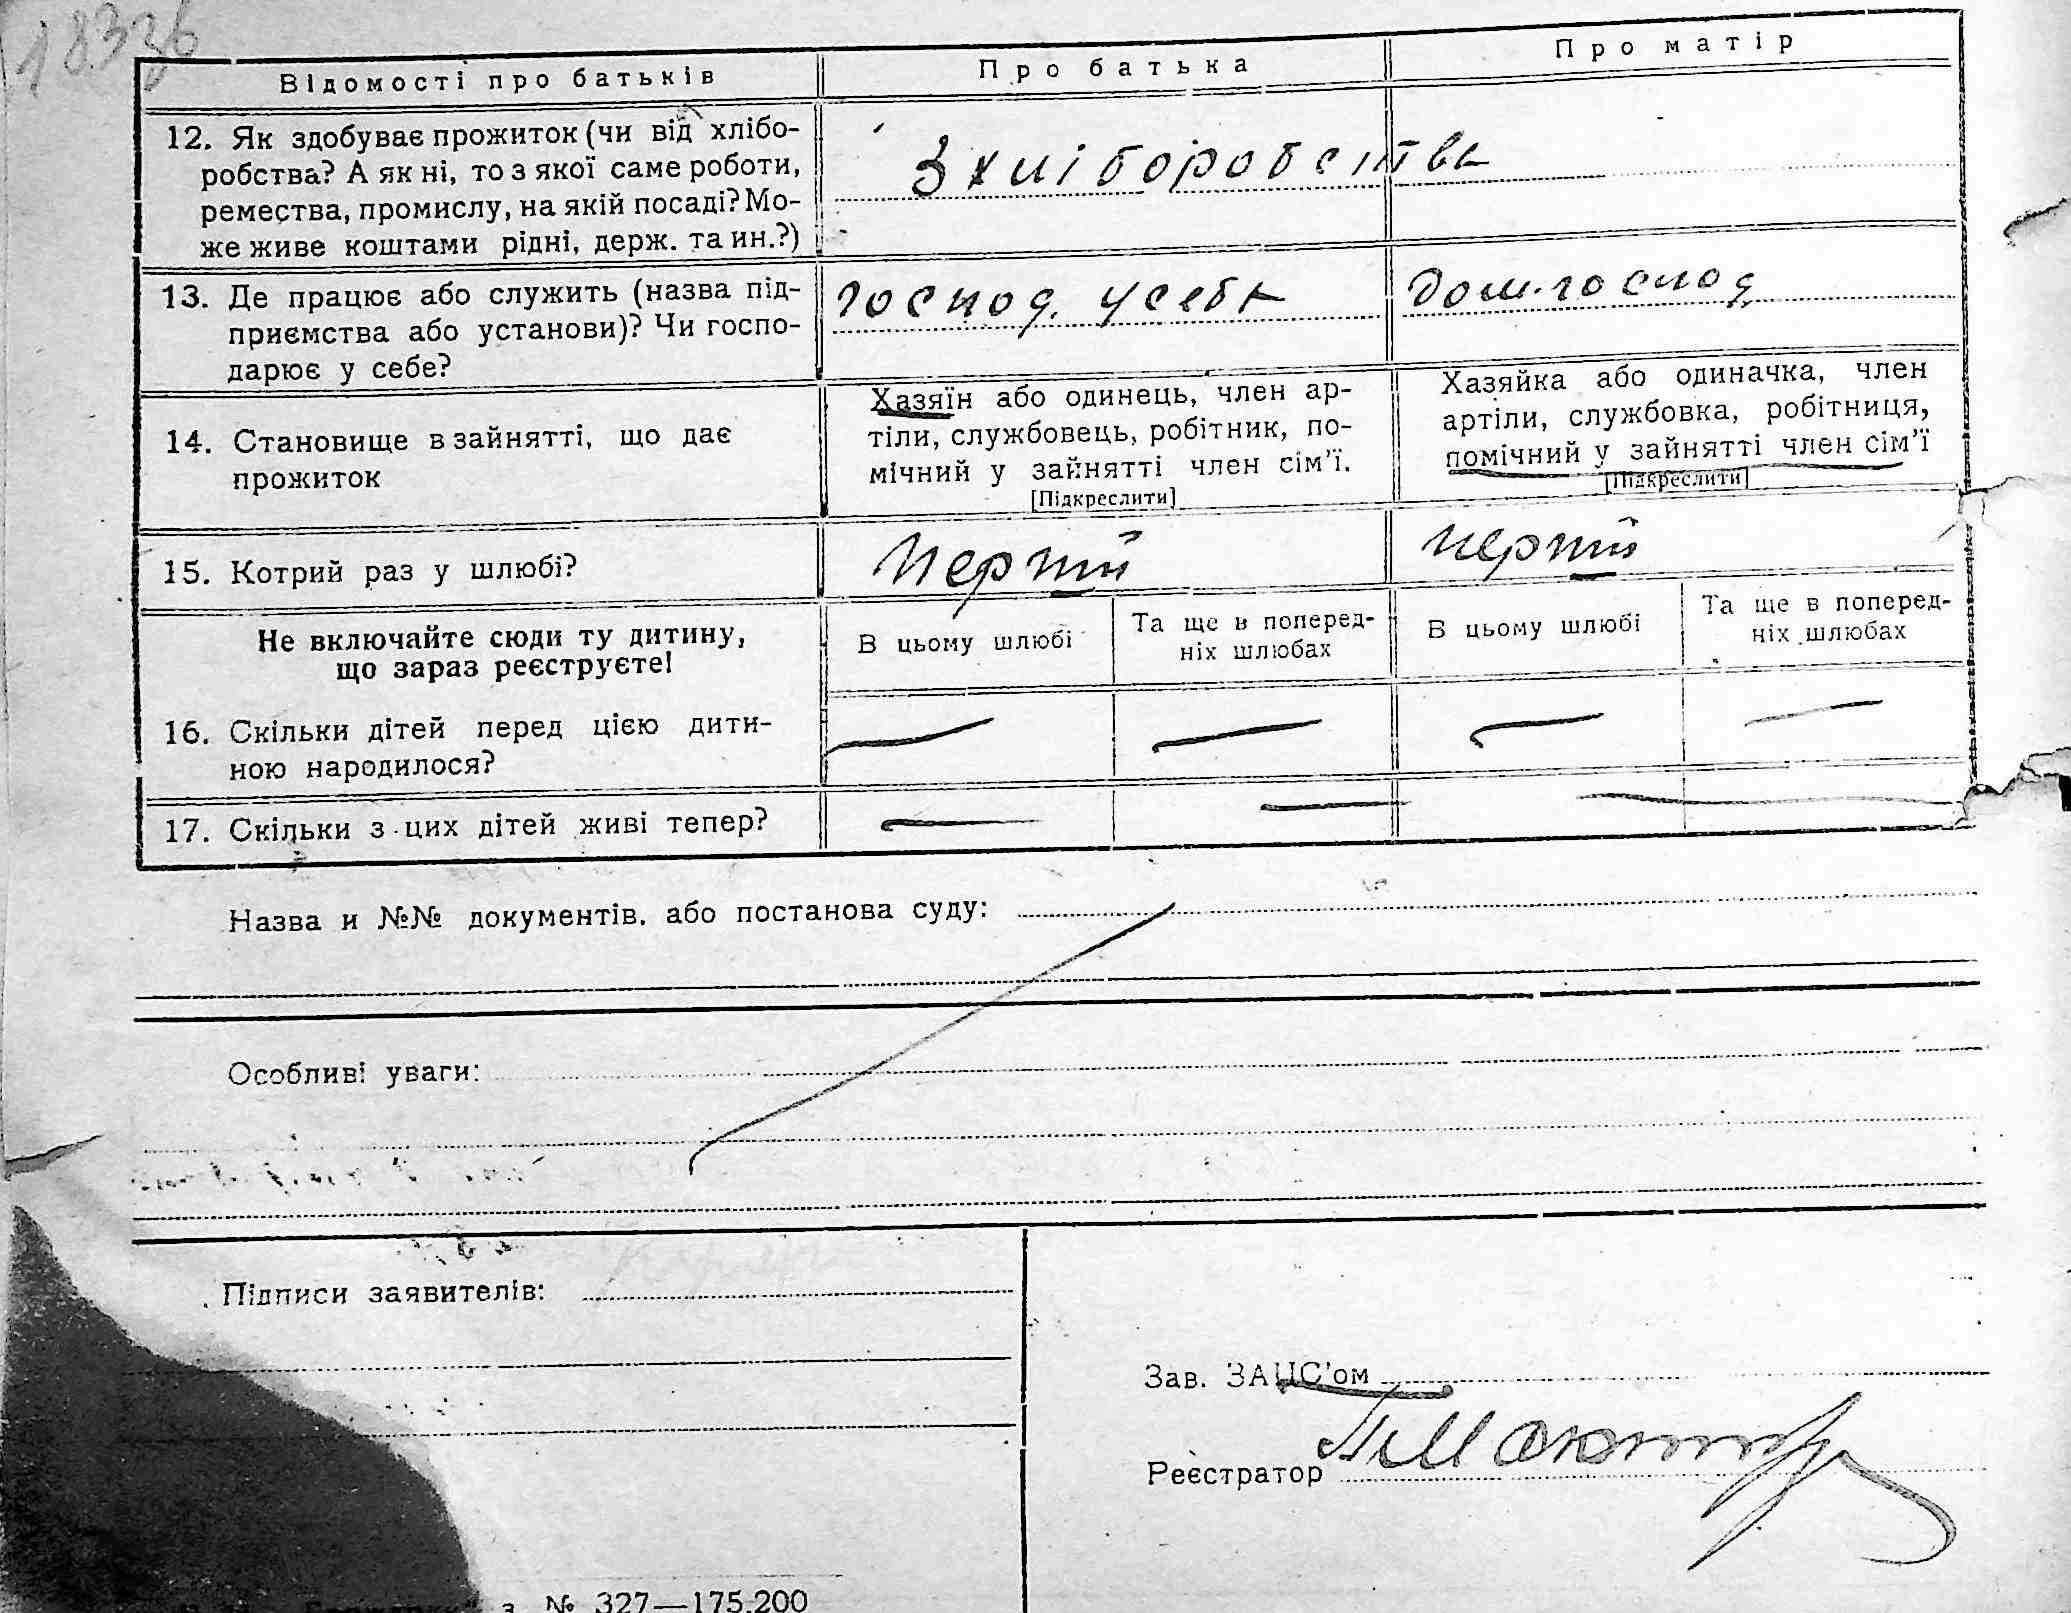 18336
Відомості про батьків
Про батька
Про матір
12. Як здобуває прожиток (чи від хлібо-
робства? А як ні, то з якої саме роботи,
ремества, промислу, на якій посаді? Мо-
же живе коштами рідні, держ. та ин.?)
З хліборобства
13. Де працює або служить (назва під-
приємства або установи)? Чи госпо-
дарює у себе?
господ. у себе
дом.господ
14. Становище в зайнятті, що дає
прожиток
Хазяїн або одинець, член ар-
тіли, службовець, робітник, по-
мічний у зайнятті член сім'ї.
[Підкреслити]
Хазяйка або одиначка, член
артіли, службовка, робітниця,
помічний у зайнятті член сім'ї
[Підкреслити]
15. Котрий раз у шлюбі?
перший
перший
Не включайте сюди ту дитину,
що зараз реєструєте!
В цьому шлюбі
Та ще в поперед-
ніх шлюбах
В цьому шлюбі
Та ще в поперед-
ніх шлюбах
16. Скільки дітей перед цією дити-
ною народилося?
— — — —
17. Скільки з цих дітей живі тепер?
— — —
Назва и №№ документів. або постанова суду:
Особливі уваги:
Підписи заявителів:
Зав. ЗАЦС'ом
Реєстратор
з. № 327—175.200